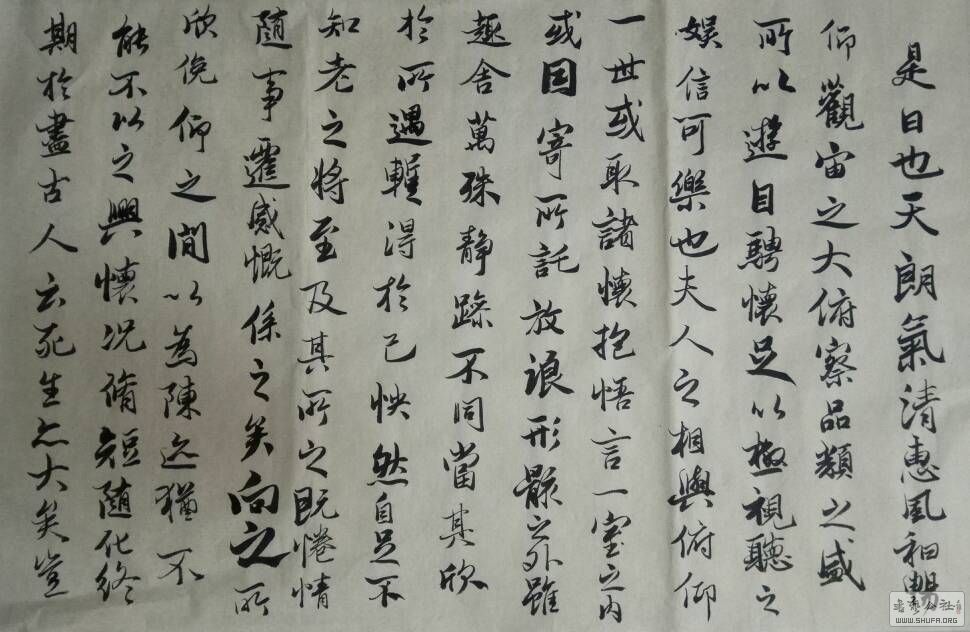 是日也天朗氣清惠風和暢
仰觀宙之大俯察品類之盛
所以遊目騁懷足以極視聽之
娛信可樂也夫人之相與俯仰
一世或取諸懷抱悟言一室之内
或因寄所託放浪形骸之外雖
趣舍萬殊静躁不同當其欣
於所遇暫得於己怏然自足不
知老之將至及其所之既惓情
隨事遷感慨係之矣向之所
欣俛仰之間以為陳迹猶不
能不以之興懷況脩短隨化終
期於盡古人云死生亦大矣豈
WWW.SHUFA.ORG